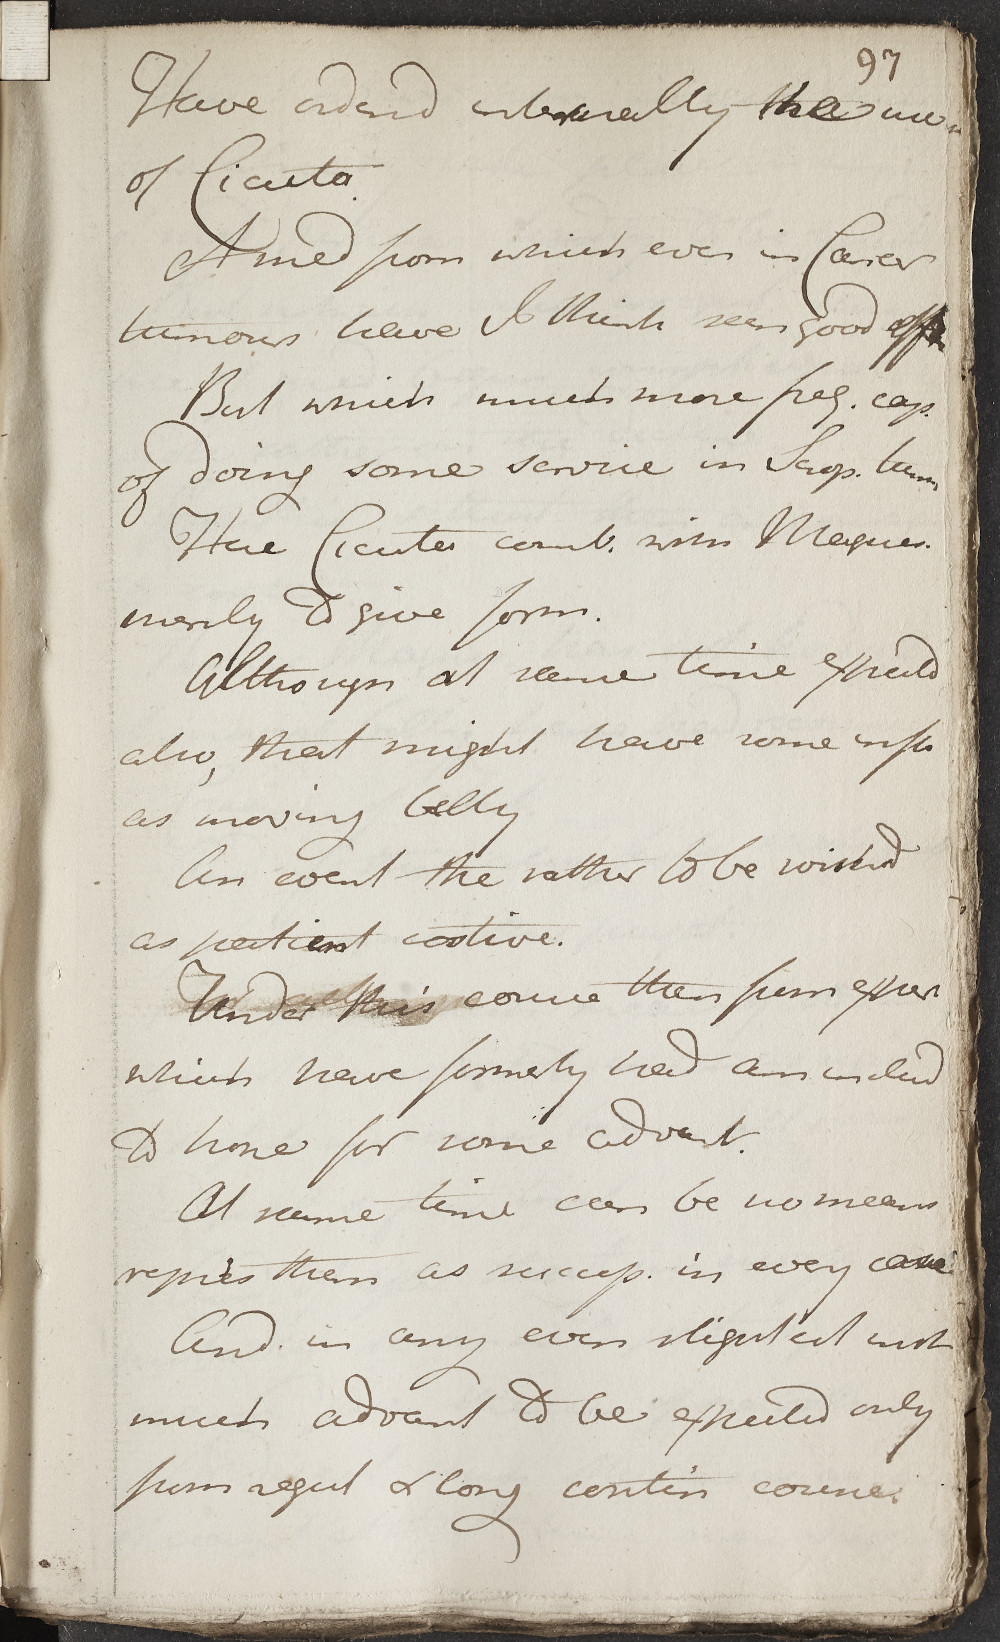 97
Have orderd internally the use
of Cicuta.
A med from which even in Cancer
tumours have I think seen good effe
But which much more freq. cap.
of doing some service in Scrop. tum
Have Cicuta comb. with Magnes.
merely to give form.
Although at same time expected
also, that might have some infl
as moving belly
An event the rather to be wishd
as patient costive.
Under this course then from exper
which have formerly had am inclind
to hope for some advant.
At same time can be no means
repres them as succesf. in every case
And. in any even slightest not
much advant to be expected only
from regul & long contin course.